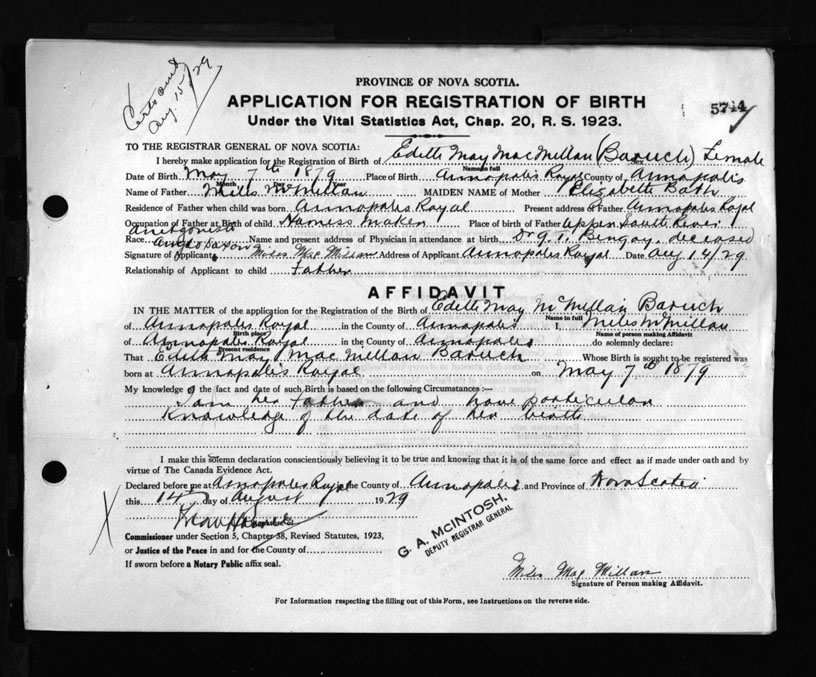 Certs sent
Aug. 15/29
PROVINCE OF NOVA SCOTIA.
APPLICATION FOR REGISTRATION OF BIRTH
5744
Under the Vital Statistics Act, Chap. 20, R. S. 1923.
TO THE REGISTRAR GENERAL OF NOVA SCOTIA:
I hereby make application for the Registration of Birth of Edith May MacMillan (Baruch) Sex Female
Name in full
Date of Birth May 7th 1879 Place of Birth Annapolis Royal County of Annapolis
Month Day Year
Name of Father Miles McMillan MAIDEN NAME of Mother Elizabeth Bath
Residence of Father when child was born Annapolis Royal Present address of Father Annapolis Royal
Occupation of Father at Birth of child Harness Maker Place of birth of Father Upper South River
Antigonish
Race Anglo Saxon Name and present address of Physician in attendance at birth Dr. G. T. Bingay, deceased
Signature of Applicant Miles Mac Millan Address of Applicant Annapolis Royal Date Aug 14/29
Relationship of Applicant to child Father
AFFIDAVIT
IN THE MATTER of the application for the Registration of the Birth of Edith May McMillan Baruch
Name in full
of Annapolis Royal in the County of Annapolis I, Miles McMillan
Birth place Name of person making Affidavit
of Annapolis Royal in the County of Annapolis do solemnly declare:
Present residence
That Edith May MacMillan Baruch Whose Birth is sought to be registered was
born at Annapolis Royal on May 7th 1879
My knowledge of the fact and date of such Birth is based on the following Circumstances:—
I am her father and have particular
knowledge of the date of her birth
I make this solemn declaration conscientiously believing it to be true and knowing that it is of the same force and effect as if made under oath and by
virtue of The Canada Evidence Act.
Declared before me at Annapolis Royal the County of Annapolis and Province of Nova Scotia
this 14th day of August 1929
Commissioner under Section 5, Chapter 38, Revised Statutes, 1923,
or Justice of the Peace in and for the County of
If sworn before a Notary Public affix seal.
G. A. McINTOSH,
DEPUTY REGISTRAR GENERAL
Miles Mac Millan
Signature of Person making Affidavit.
For Information respecting the filling out of this Form, see Instructions on the reverse side.